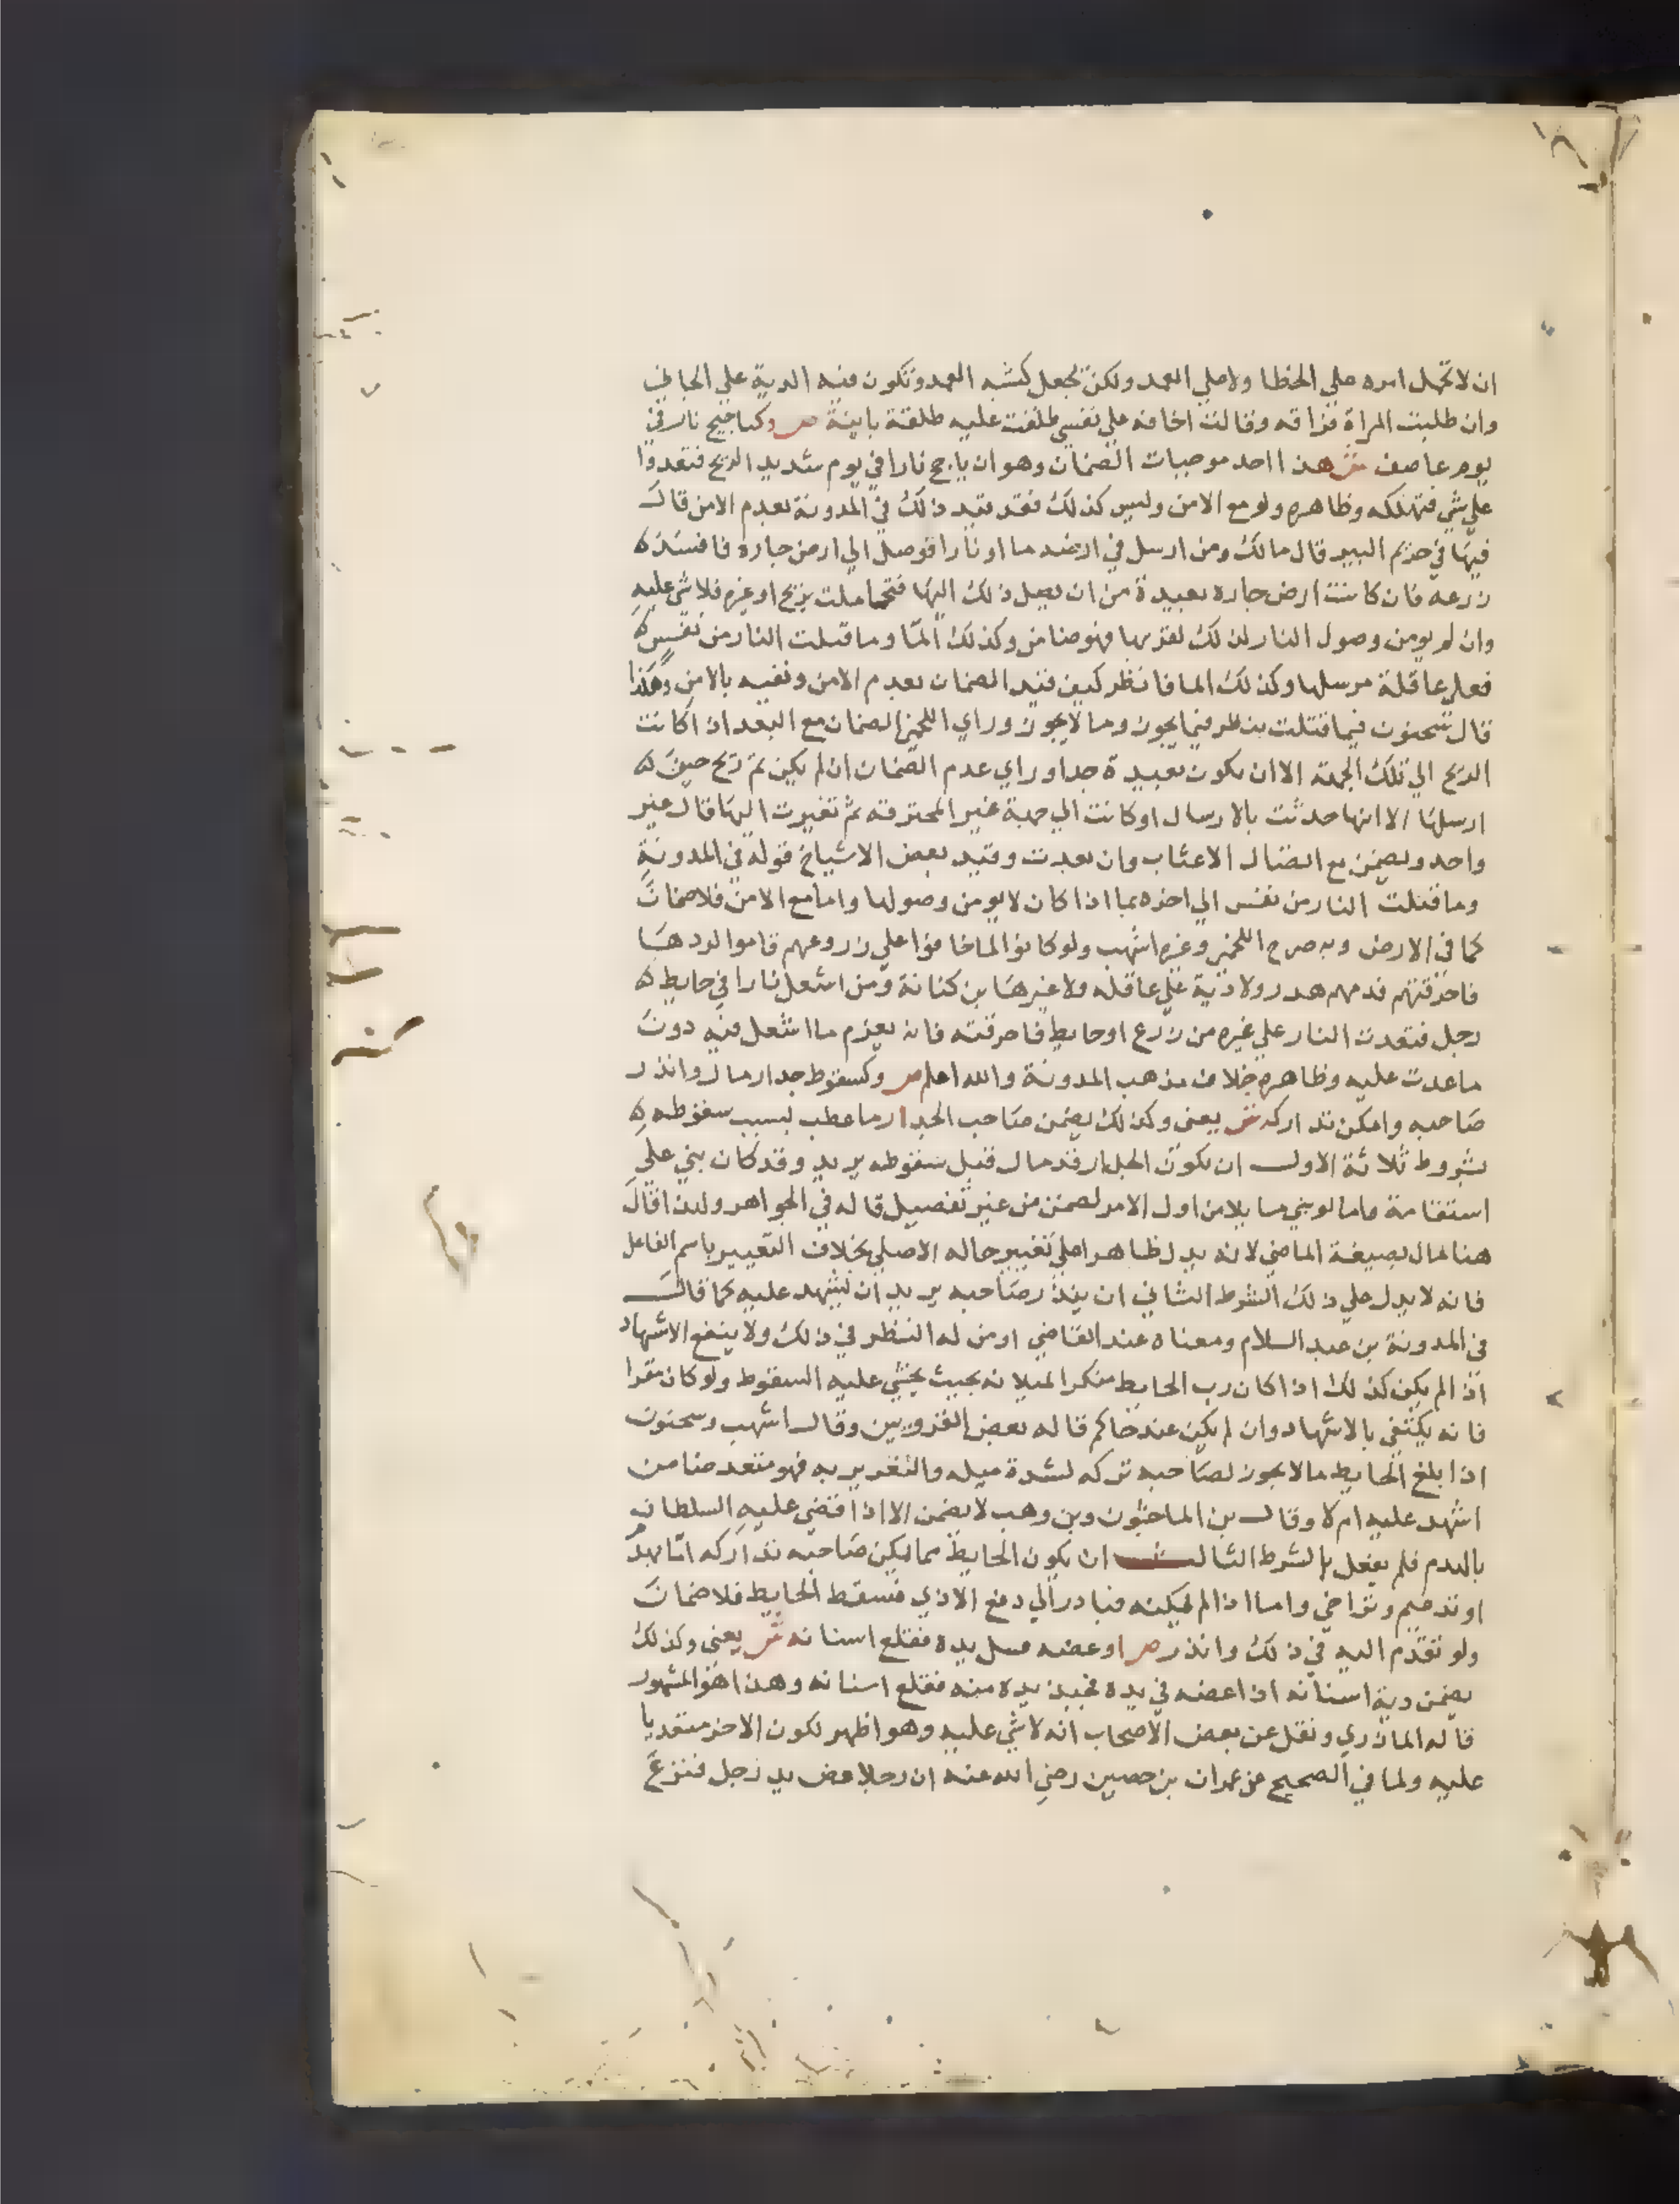 ان لا تحمل امره علي الخطا ولا علي العمد ولكن يجعل كشبه العمد وتكون فيه الدية علي الجاني
وان طلبت المراة فراقه وقالت اخافه علي نفسي طلقت عليه طلقة باينة ص وكتاجيج نار في
يوم عاصف ش هذا احد موجبات الضمان وهو ان ياجج نارا في يوم شديد الريح فتعدوا
علي شي فتهلكه وظاهره ولو مع الامن وليس كذلك فقد قيد ذلك في المدونة بعدم الامن قال
فيها في حريم البير قال مالك ومن ارسل في ارضه ما او نارا فوصل الي ارض جاره فافسد
زرعه فان كانت ارض جاره بعيدة من ان يصل ذلك اليها فتحاملت بريح او غيره فلا شي عليه
وان لم يومن وصول النار لذلك لقربها فهو ضامن وكذلك الما وما قتلت النار من نفس
فعلي عاقلة مرسلها وكذلك الما فانظر كيف قيد الضمان بعدم الامن ونفيه بالامن وهكذا
قال سحنون فيما قتلت ينظر فيما يجوز وما لا يجوز وراي اللخمي الضمان مع البعد اذا كانت
الريح الي تلك الجهة الا ان يكون بعيدة جدا وراي عدم الضمان ان لم يكن ثم ريح حين
ارسلها الا انها حدثت بالارسال او كانت الي جهة غير المحترقة ثم تغيرت اليها قال غير
واحد ويضمن مع اتصال الاعشاب وان بعدت وقيد بعض الاشياخ قوله في المدونة
وما قتلت النار من نفس الي اخره بما اذا كان لا يومن وصولها واما مع الامن فلا ضمان
كما في الارض وبه صرح اللخمي وغيره اشهب ولو كانوا لما خافوا علي زروعهم قاموا لردها
فاحرقتهم فدمهم هدر ولا دية علي عاقلة ولا غيرها بن كنانة ومن اشعل نارا في حايط
رجل فتعدت النار علي غيره من زرع او حايط فاحرقته فانه يغرم ما اشعل فيه دون
ما عدت عليه وظاهره خلاف مذهب المدونة والله اعلم ص وكسقوط جدار مال وانذر
صاحبه وامكن تداركه ش يعني وكذلك يضمن صاحب الجدار ما عطب بسبب سقوطه
بشروط ثلاثة الاول ان يكون الجدار قد مال قبل سقوطه يريد وقد كان بني علي
استقامة واما لو بني مايلا من اول الامر لضمن من غير تفصيل قاله في الجواهر ولهذا قال
هنا مال بصيغة الماضي لانه يدل ظاهرا علي تغيير حاله الاصلي بخلاف التعبير باسم الفاعل
فانه لا يدل علي ذلك الشرط الثاني ان ينذر صاحبه يريد ان يشهد عليه كما قال
في المدونة بن عبد السلام ومعناه عند القاضي او من له النظر في ذلك ولا ينفع الاشهاد
اذا لم يكن كذلك اذا كان رب الحايط منكرا لميلانه بحيث يخشي عليه السقوط ولو كان مقرا
فانه يكتفي بالاشهاد وان لم يكن عند حاكم قاله بعض القرويين وقال اشهب وسحنون
اذا بلغ الحايط ما لا يجوز لصاحبه تركه لشدة ميله والتغرير به فهو متعد ضامن
اشهد عليه ام لا وقال بن الماجشون وبن وهب لا يضمن الا اذا قضي عليه السلطان
بالهدم فلم يفعل الشرط الثالث ان يكون الحايط مما يمكن صاحبه تداركه اما بهد
او تدعيم وتراخي واما اذا لم يمكنه فبادر الي دفع الاذي فسقط الحايط فلا ضمان
ولو تقدم اليه في ذلك وانذر ص او عضه فسل يده فقلع اسنانه ش يعني وكذلك
يضمن دية اسنانه اذا عضه في يده فجبذ يده منه فقلع اسنانه وهذا هو المشهور
قاله المازري ونقل عن بعض الاصحاب انه لا شي عليه وهو اظهر لكون الاخر متعديا
عليه ولما في الصحيح عن عمران بن حصين رضي الله عنه ان رجلا عض يد رجل فنزع